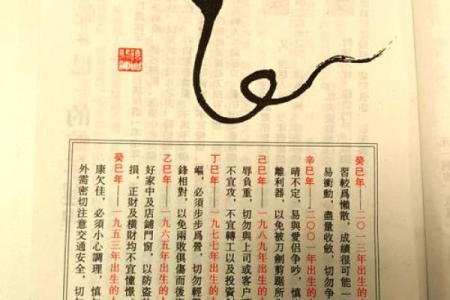 癸巳年——二〇一三年出生的
習較爲懶散，成績很可能一
易衝動，盡量收斂，切勿爭
辛巳年——二〇〇一年出生的
晴不定，易與愛侶爭吵，慎
離利器，以免被刀劍剪鋸所
己巳年——一九八九年出生的
辱負重，切勿與上司或客户
不宜攻，不宜轉工以及投資
丁巳年——一九七七年出生的
嶇，必須步步爲營，切勿輕
鋒相對，以免兩敗俱傷而後
乙巳年——一九六五年出生的
好家中及店鋪門窗，以防盜
損，正財及橫財均不宜憧憬
癸巳年——一九五三年出生的
康欠佳，必須小心調理，慎
外需密切注意交通安全，切